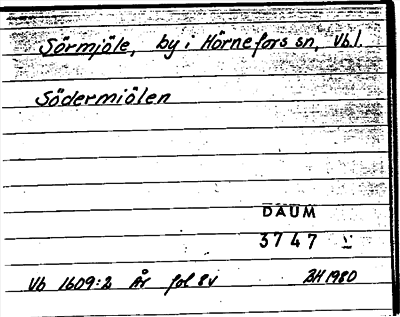 Sörmjöle, by i Hörnefors sn, Vbl.
Södermiölen
DAUM
3747
Vb 1609:2 År fol 8v BH 1980